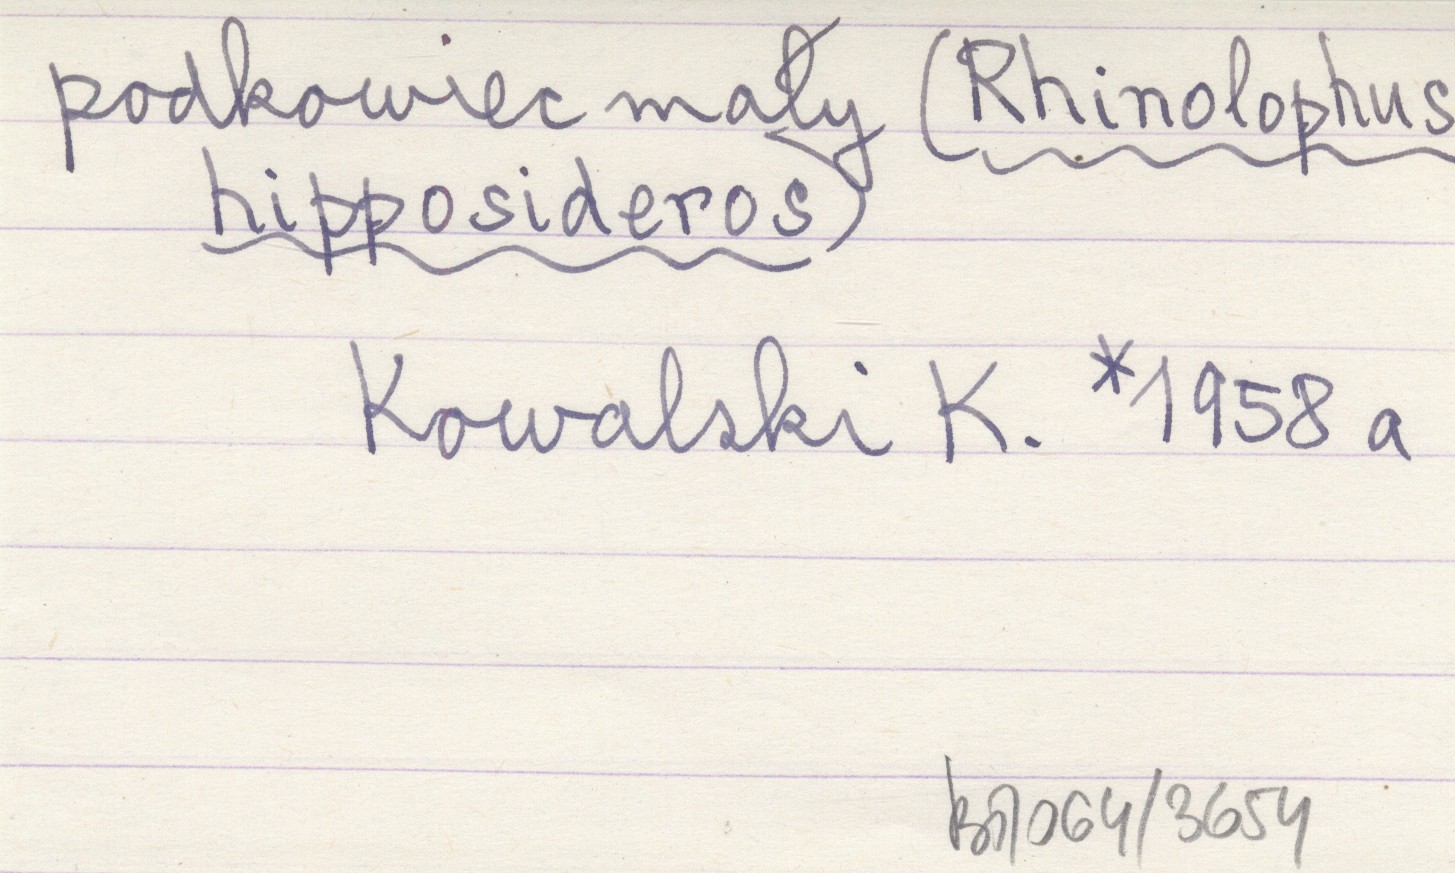 podkowiec mały (Rhinolophus
hipposideros)
Kowalski K. *1958 a
064/3654